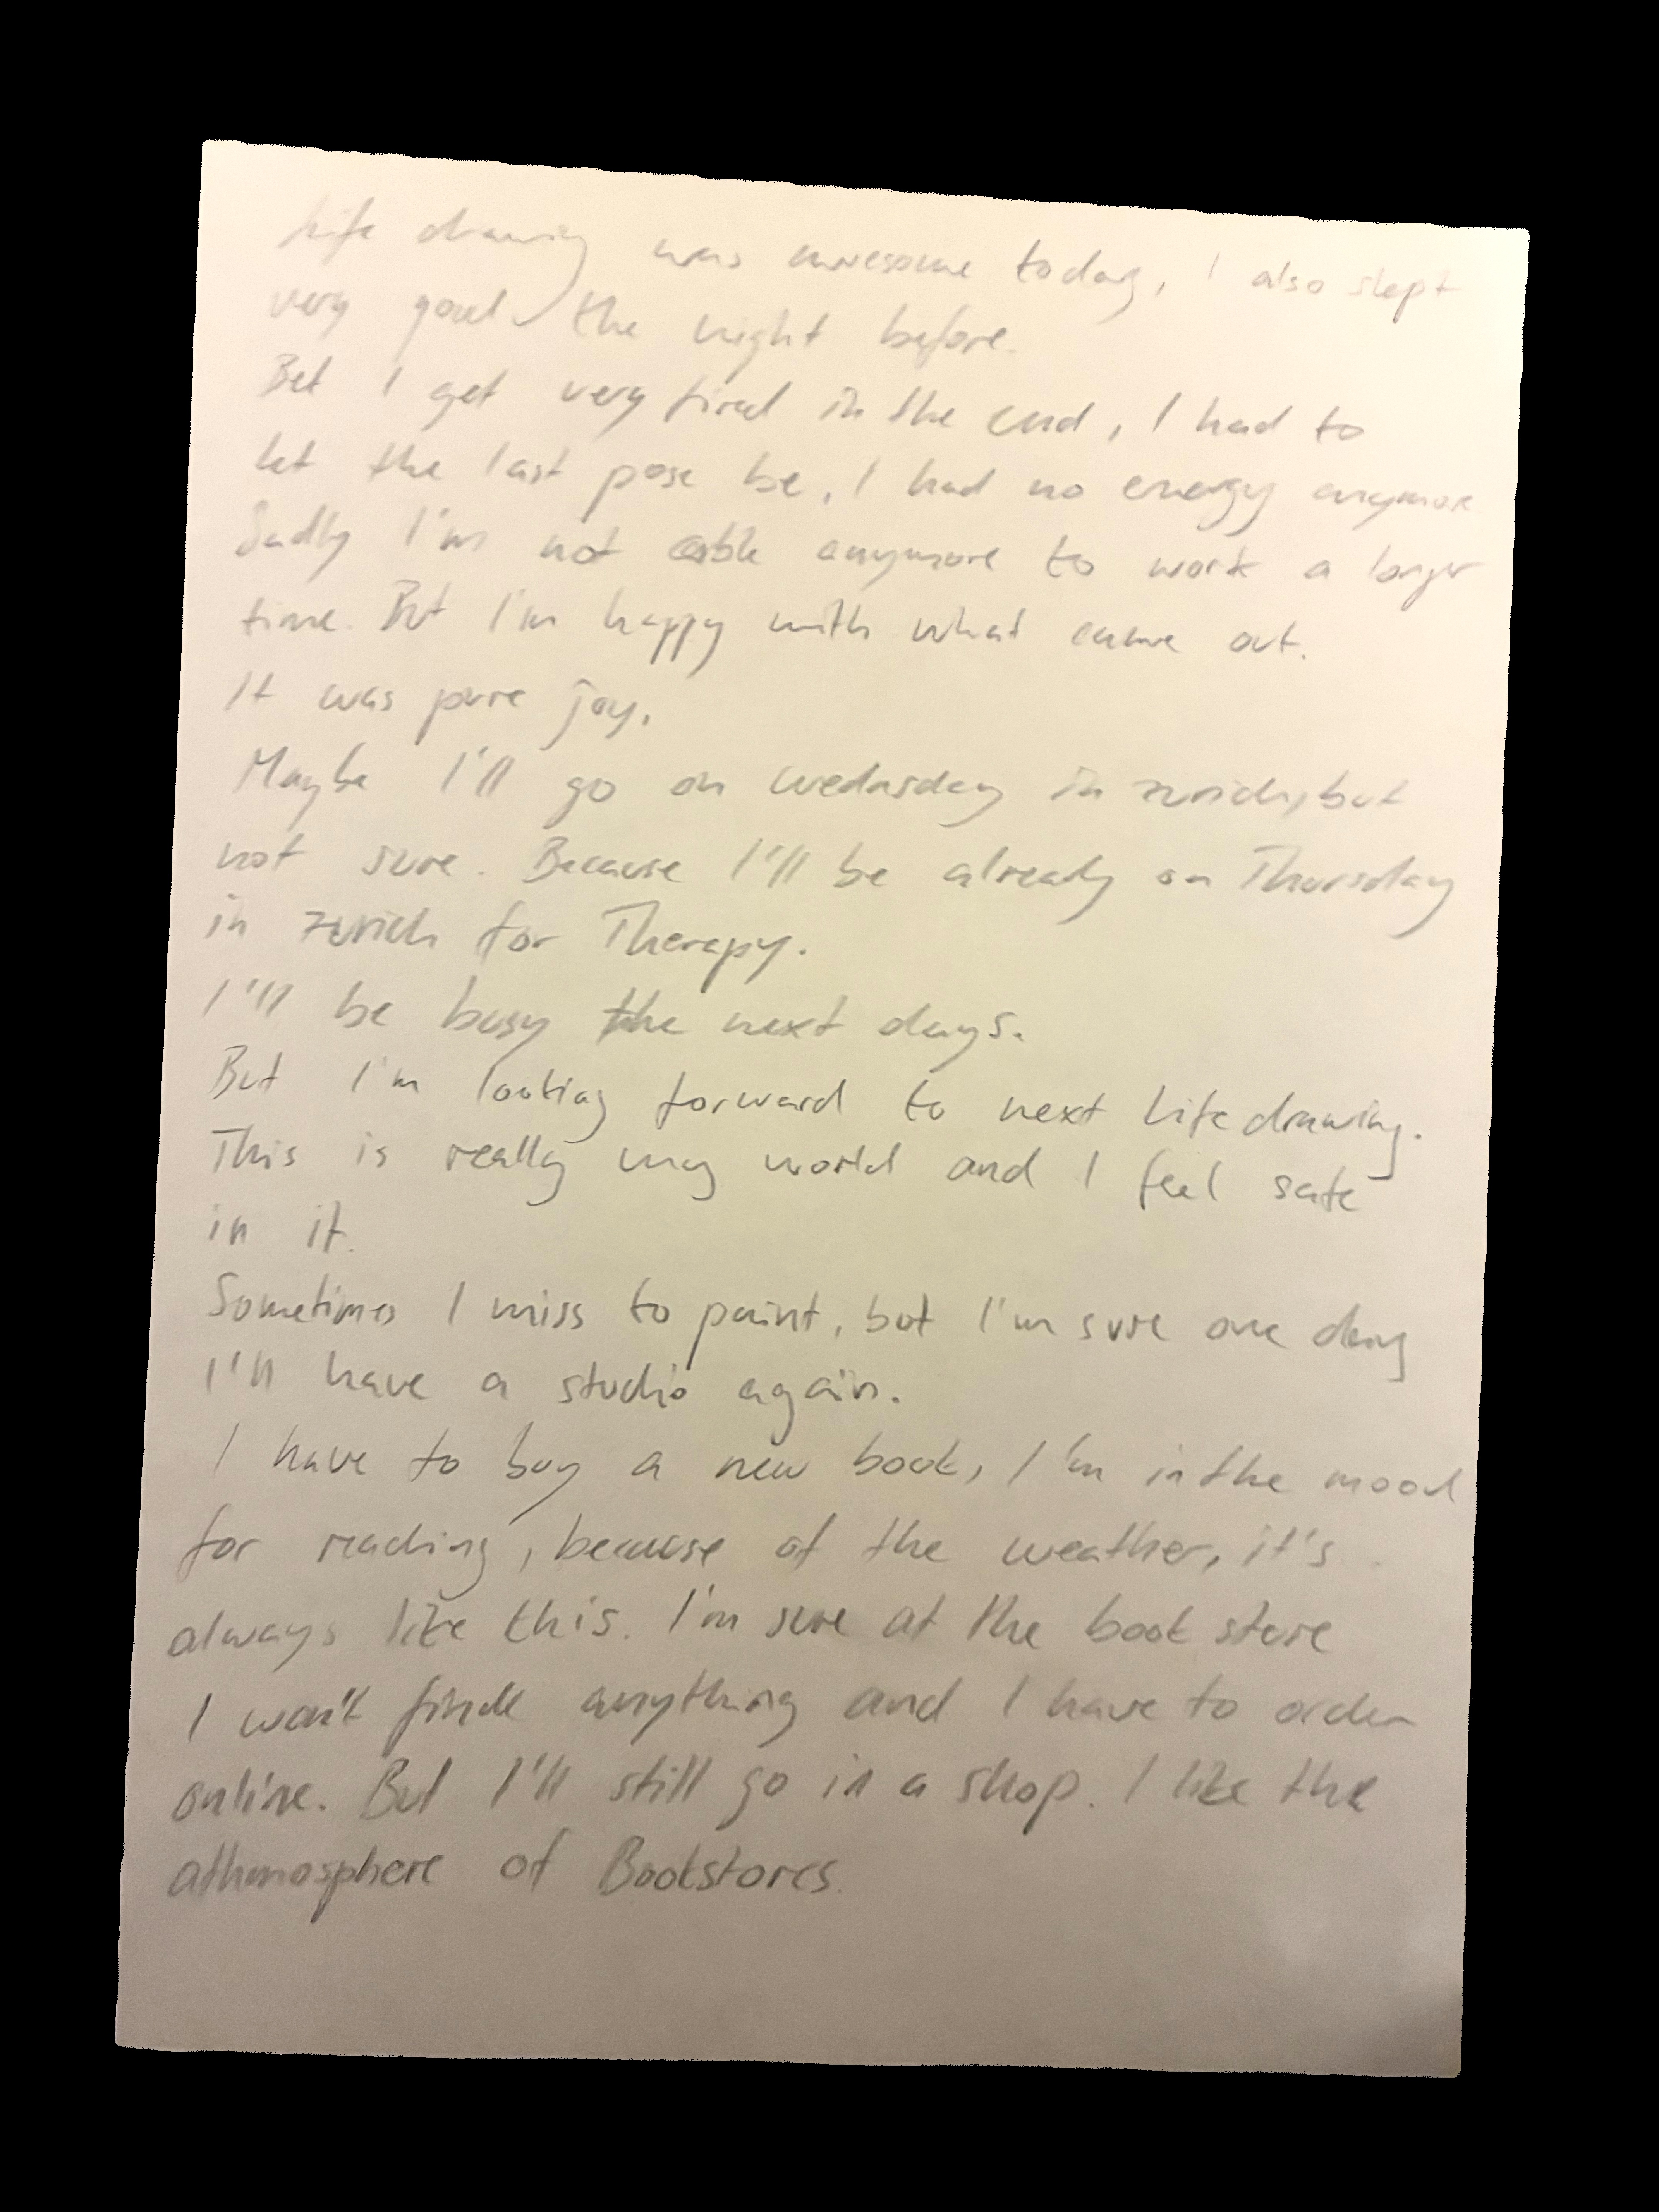 Life drawing was awesome today, I also slept
very good the night before.
But I get very tired in the end, I had to
let the last pose be, I had no energy anymore
Sadly I'm not able anymore to work a longer
time. But I'm happy with what came out.
It was pure joy.
Maybe I'll go on wednesday in zurich, but
not sure. Because I'll be already on Thursday
in zurich for Therapy.
I'll be busy the next days.
But I'm looking forward to next Life drawing.
This is really my world and I feel safe
in it.
Sometimes I miss to paint, but I'm sure one day
I'll have a studio again.
I have to buy a new book, I'm in the mood
for reading, because of the weather, it's
always like this. I'm sure at the book store
I won't find anything and I have to order
online. But I'll still go in a shop. I like the
athmosphere of Bookstores.